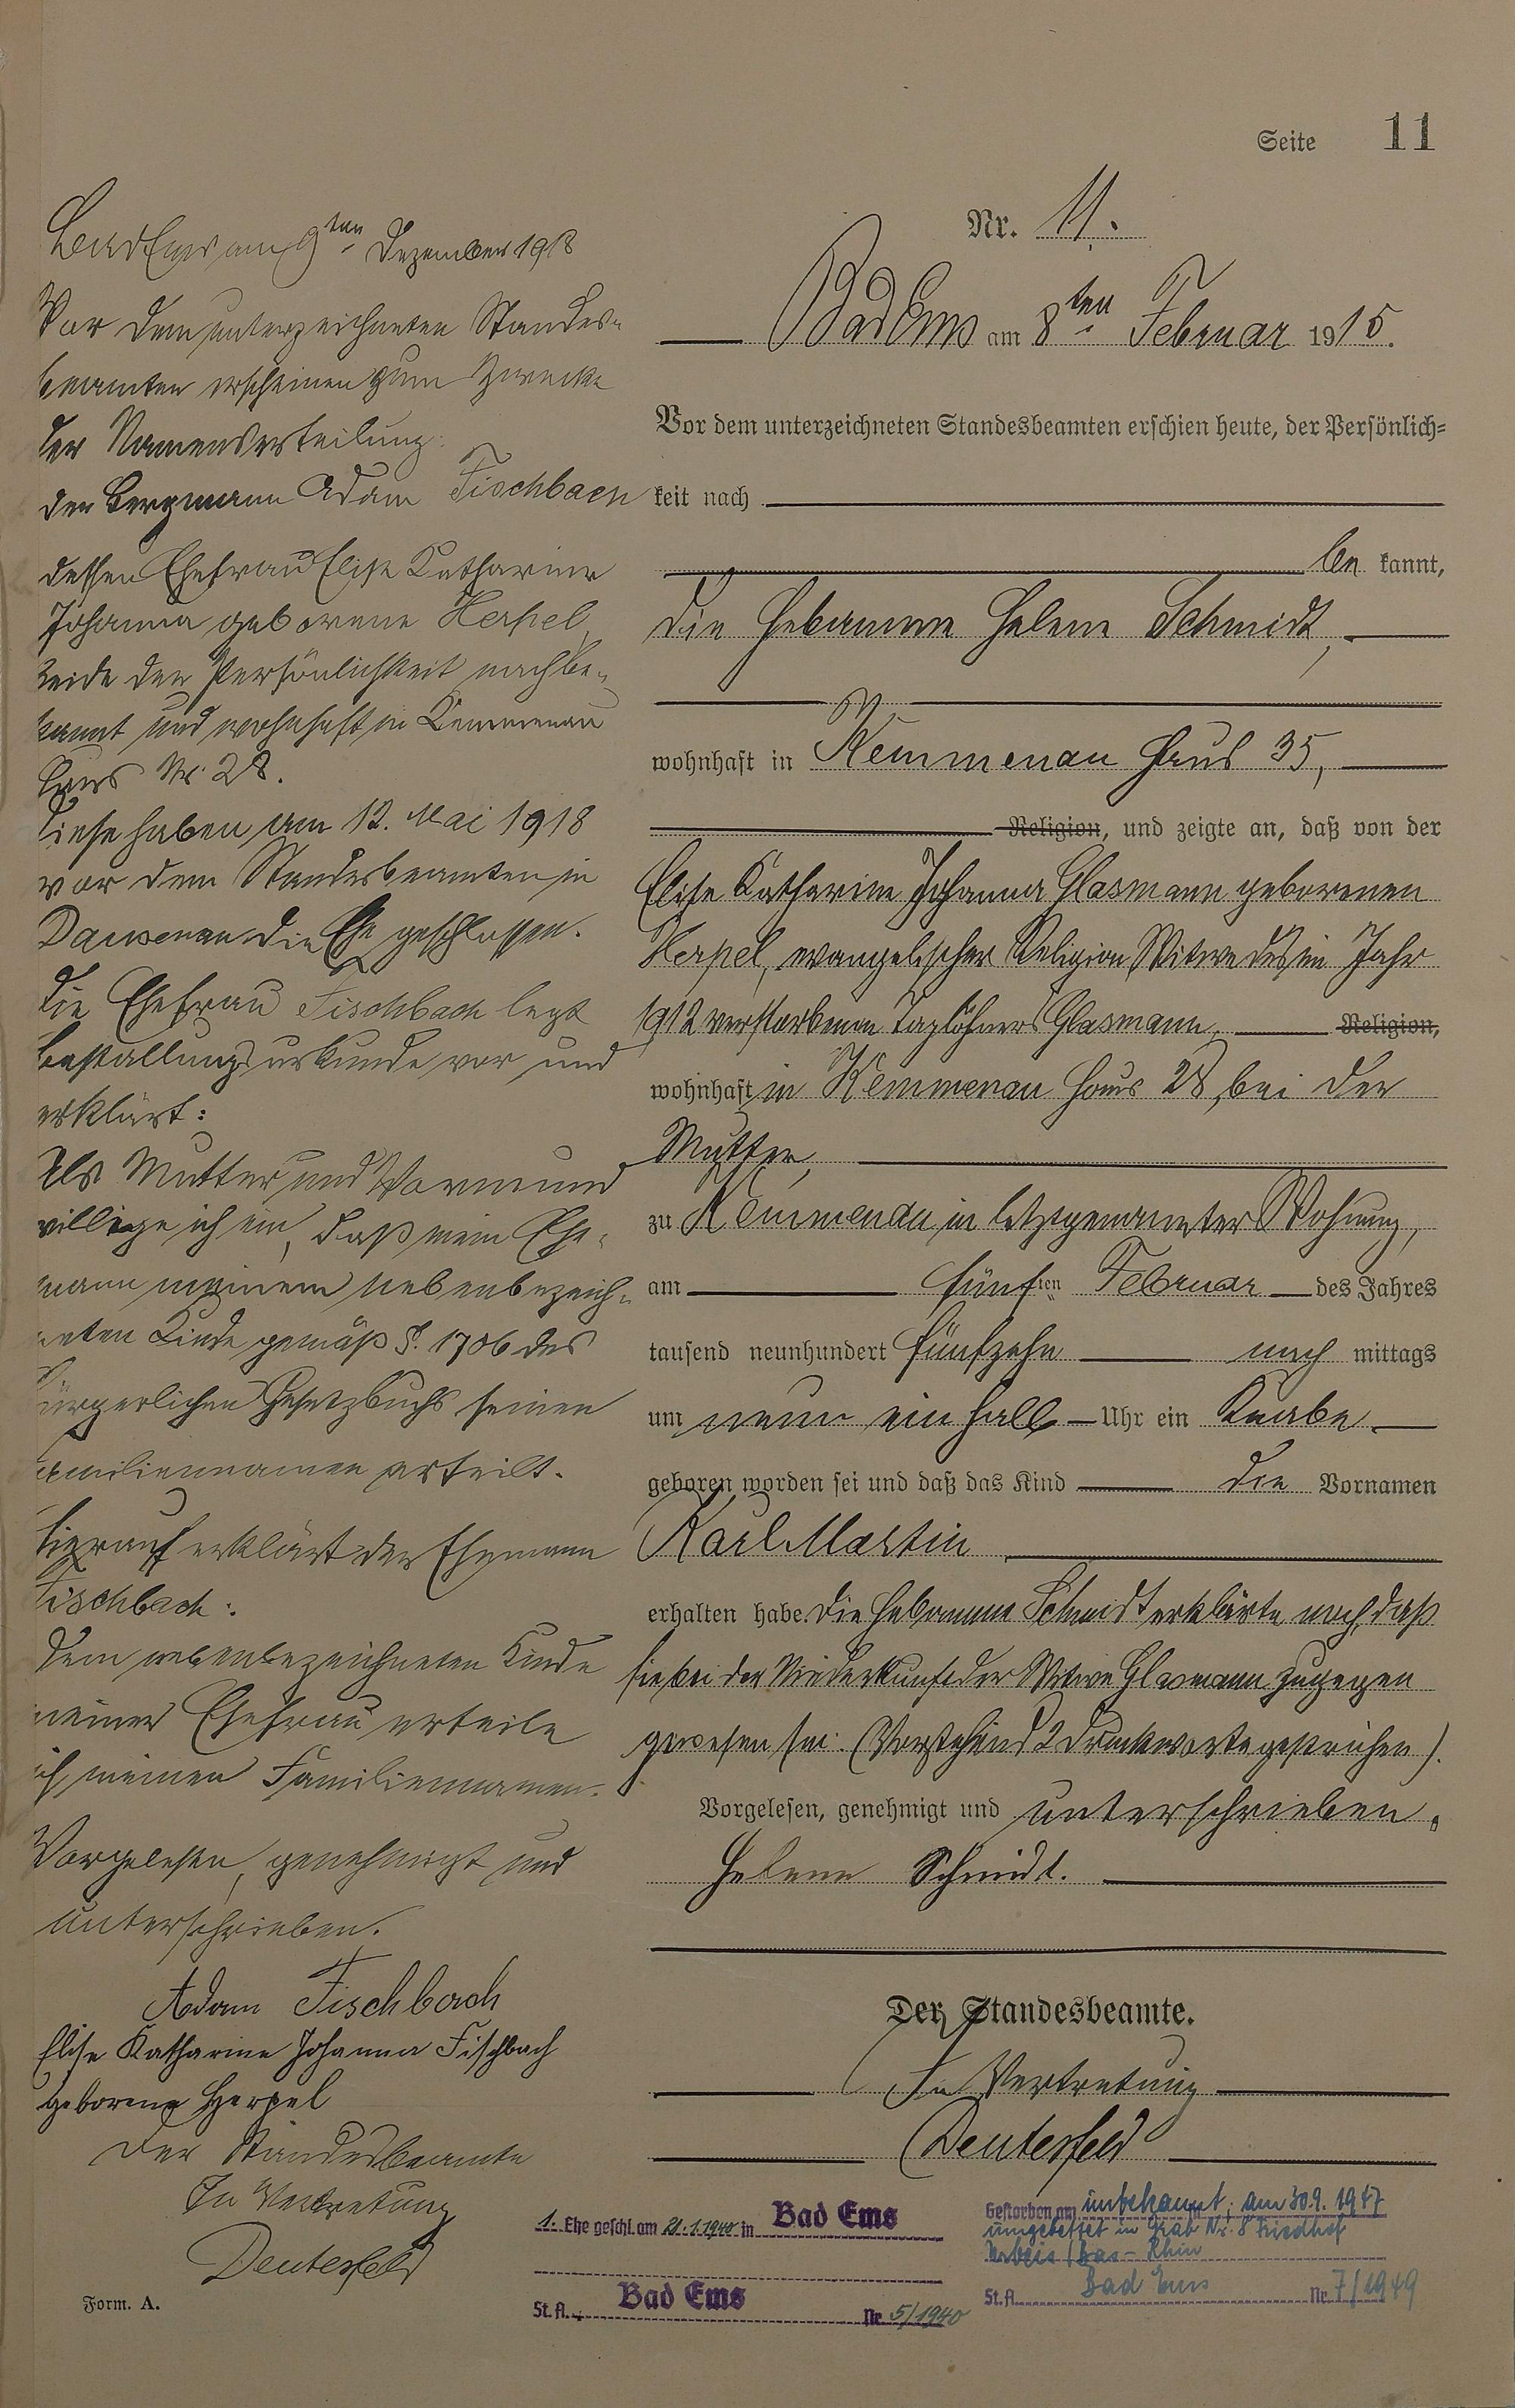 Seite 11
Nr. 11.
Bad Ems am 8ten Februar 1915.
Vor dem unterzeichneten Standesbeamten erschien heute, der Persönlich=
keit nach
be kannt,
die Hebamme Helene Schmidt,
wohnhaft in Kemmenau Haus 35,
Religion, und zeigte an, daß von der
Elise Katharine Johanna Glasmann geborenen
Herpel, evangelischer Religion, Witwe des im Jahr
1912 verstorbenen Taglöhners Glasmann, Religion,
wohnhaft in Kemmenau Haus 28, bei der
Mutter,
zu Kemmenau in letztgenannter Wohnung,
am fünften Februar des Jahres
tausend neunhundert fünfzehn nach mittags
um neun ein halb Uhr ein Knabe
geboren worden sei und daß das Kind die Vornamen
Karl Martin
erhalten habe. Die Hebamme Schmidt erklärte noch, daß
sie bei der Niederkunft der Witwe Glasmann zugegen
gewesen sei. (Vorstehend 2 Druckworte gestrichen).
Vorgelesen, genehmigt und unterschrieben.
Helene Schmidt.
Der Standesbeamte.
In Vertretung
Deutesfeld
Bad Ems am 9ten Dezember 1918
Vor dem unterzeichneten Standes=
beamten erscheinen zum Zwecke
der Namenserteilung:
der Bergmann Adam Fischbach
dessen Ehefrau Elise Katharine
Johanna geborene Herpel,
beide der Persönlichkeit nach be=
kannt und wohnhaft in Kemmenau
Haus Nr. 28.
Diese haben am 12. Mai 1918
vor dem Standesbeamten in
Dausenau die Ehe geschlossen.
Die Ehefrau Fischbach legt
Bestallungsurkunde vor und
erklärt:
Als Mutter und Vormund
willige ich ein, daß mein Ehe=
mann meinem nebenbezeich=
neten Kinde gemäß §. 1706 des
Bürgerlichen Gesetzbuchs seinen
Familiennamen erteilt.
Hierauf erklärt der Ehemann
Fischbach:
Dem nebenbezeichneten Kinde
meiner Ehefrau erteile
ich meinen Familiennamen.
Vorgelesen, genehmigt und
unterschrieben.
Adam Fischbach
Elise Katharine Johanna Fischbach
geborene Herpel
Der Standesbeamte
In Vertretung
Deutesfeld
1. Ehe geschl. am 21.1.1940 in Bad Ems
St. A. Bad Ems Nr. 5/1940
Gestorben am unbekannt; am 30.9.1947
umgebettet in Grab Nr. 8 Friedhof
Urbeis (Bas-Rhin
St. A. Bad Ems Nr. 7/1949
Form. A.